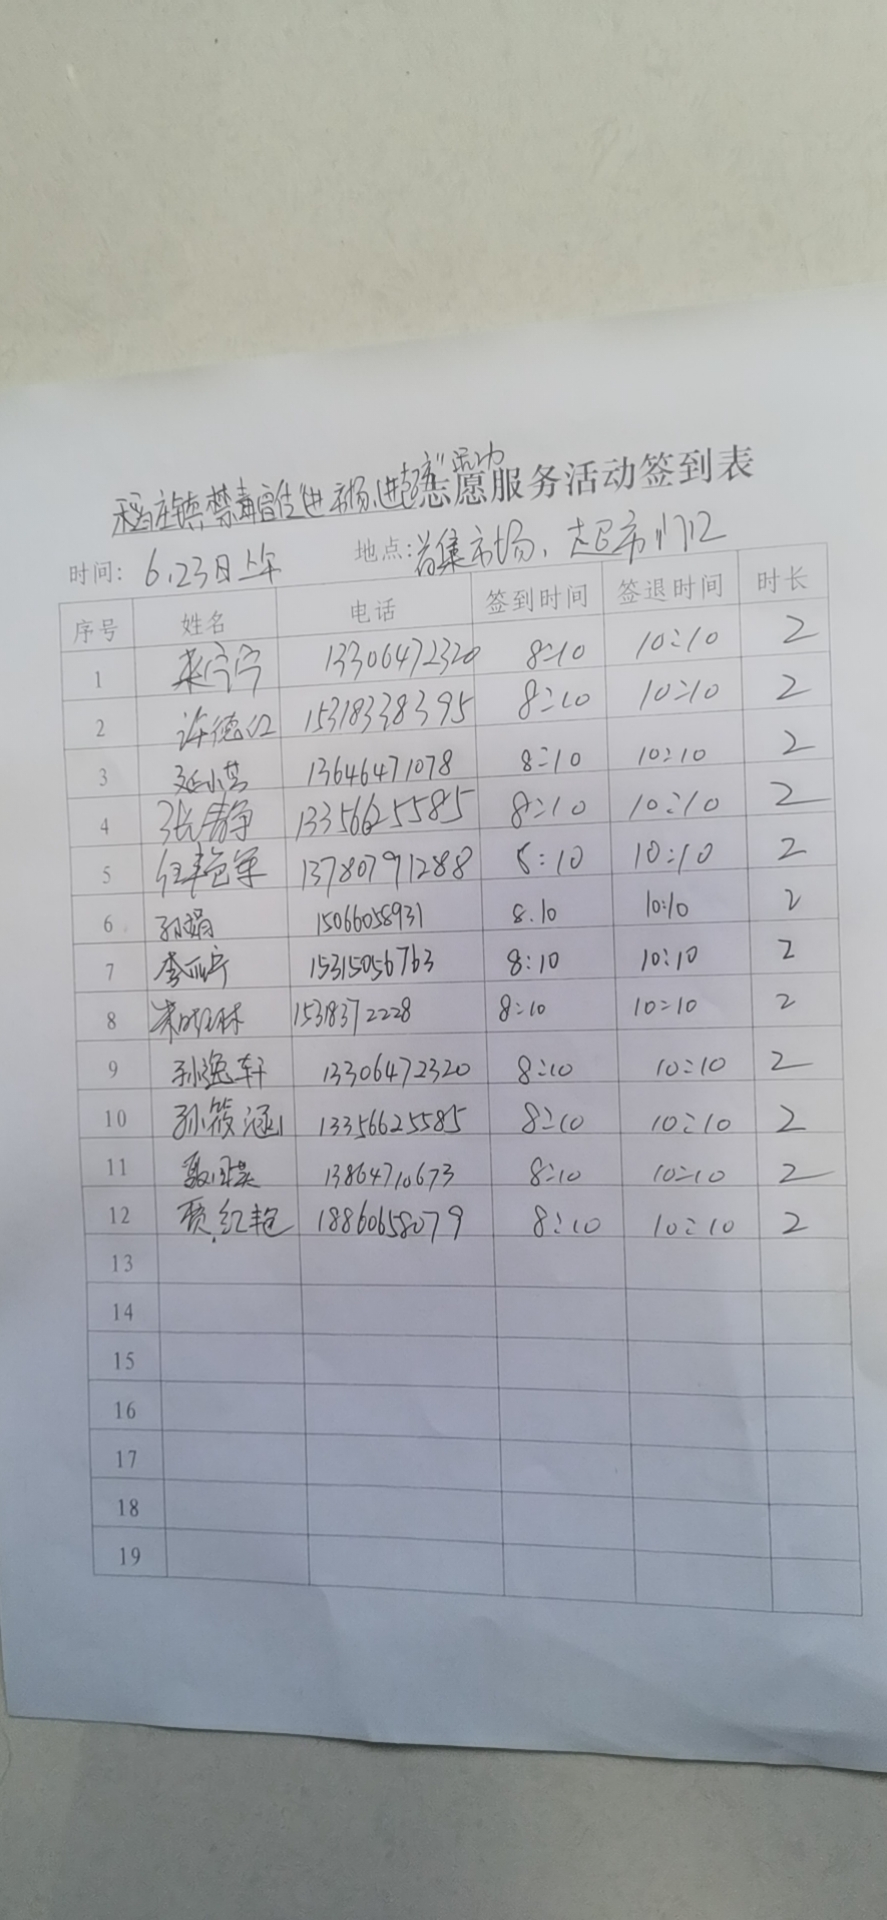 稻庄镇禁毒宣传"进市场、进超市"活动
志愿服务活动签到表
时间: 6.23日上午 地点: 集市场、超市门口
序号 姓名 电话 签到时间 签退时间 时长
1 宁宁 13306472320 8:10 10:10 2
2 许德红 15318338395 8:10 10:10 2
3 延小 13646471078 8:10 10:10 2
4 张静 13356625585 8:10 10:10 2
5 任艳军 13780791288 8:10 10:10 2
6 孙娟 15066058931 8.10 10:10 2
7 李亚宁 15315056763 8:10 10:10 2
8 1531837 2228 8:10 10:10 2
9 孙逸轩 13306472320 8:10 10:10 2
10 孙筱涵 13356625585 8:10 10:10 2
11 13864710673 8:10 10:10 2
12 贾红艳 18860658079 8:10 10:10 2
13
14
15
16
17
18
19